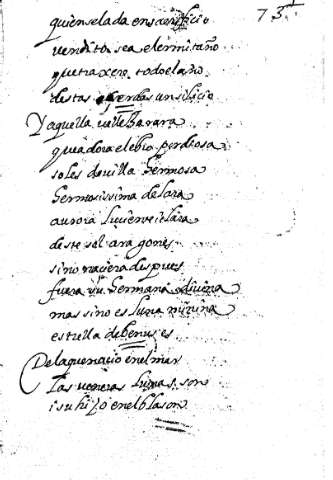 73
quien se la da en sacrificio
vendito sea el ermitaño
que traxere todo el año
destas cerdas un silicio
Y aquella valle Barara
que adora el ebio perdiosa
soles da villa hermosa
hermosissima de lara
aurora luciente i clara
deste sol aragones
si no naciera despues
fuera su hermana divina
mas si no es luna
estrella de benus es
De la que nacio en el mar
las veneras lunas son
i su hijo en el blason